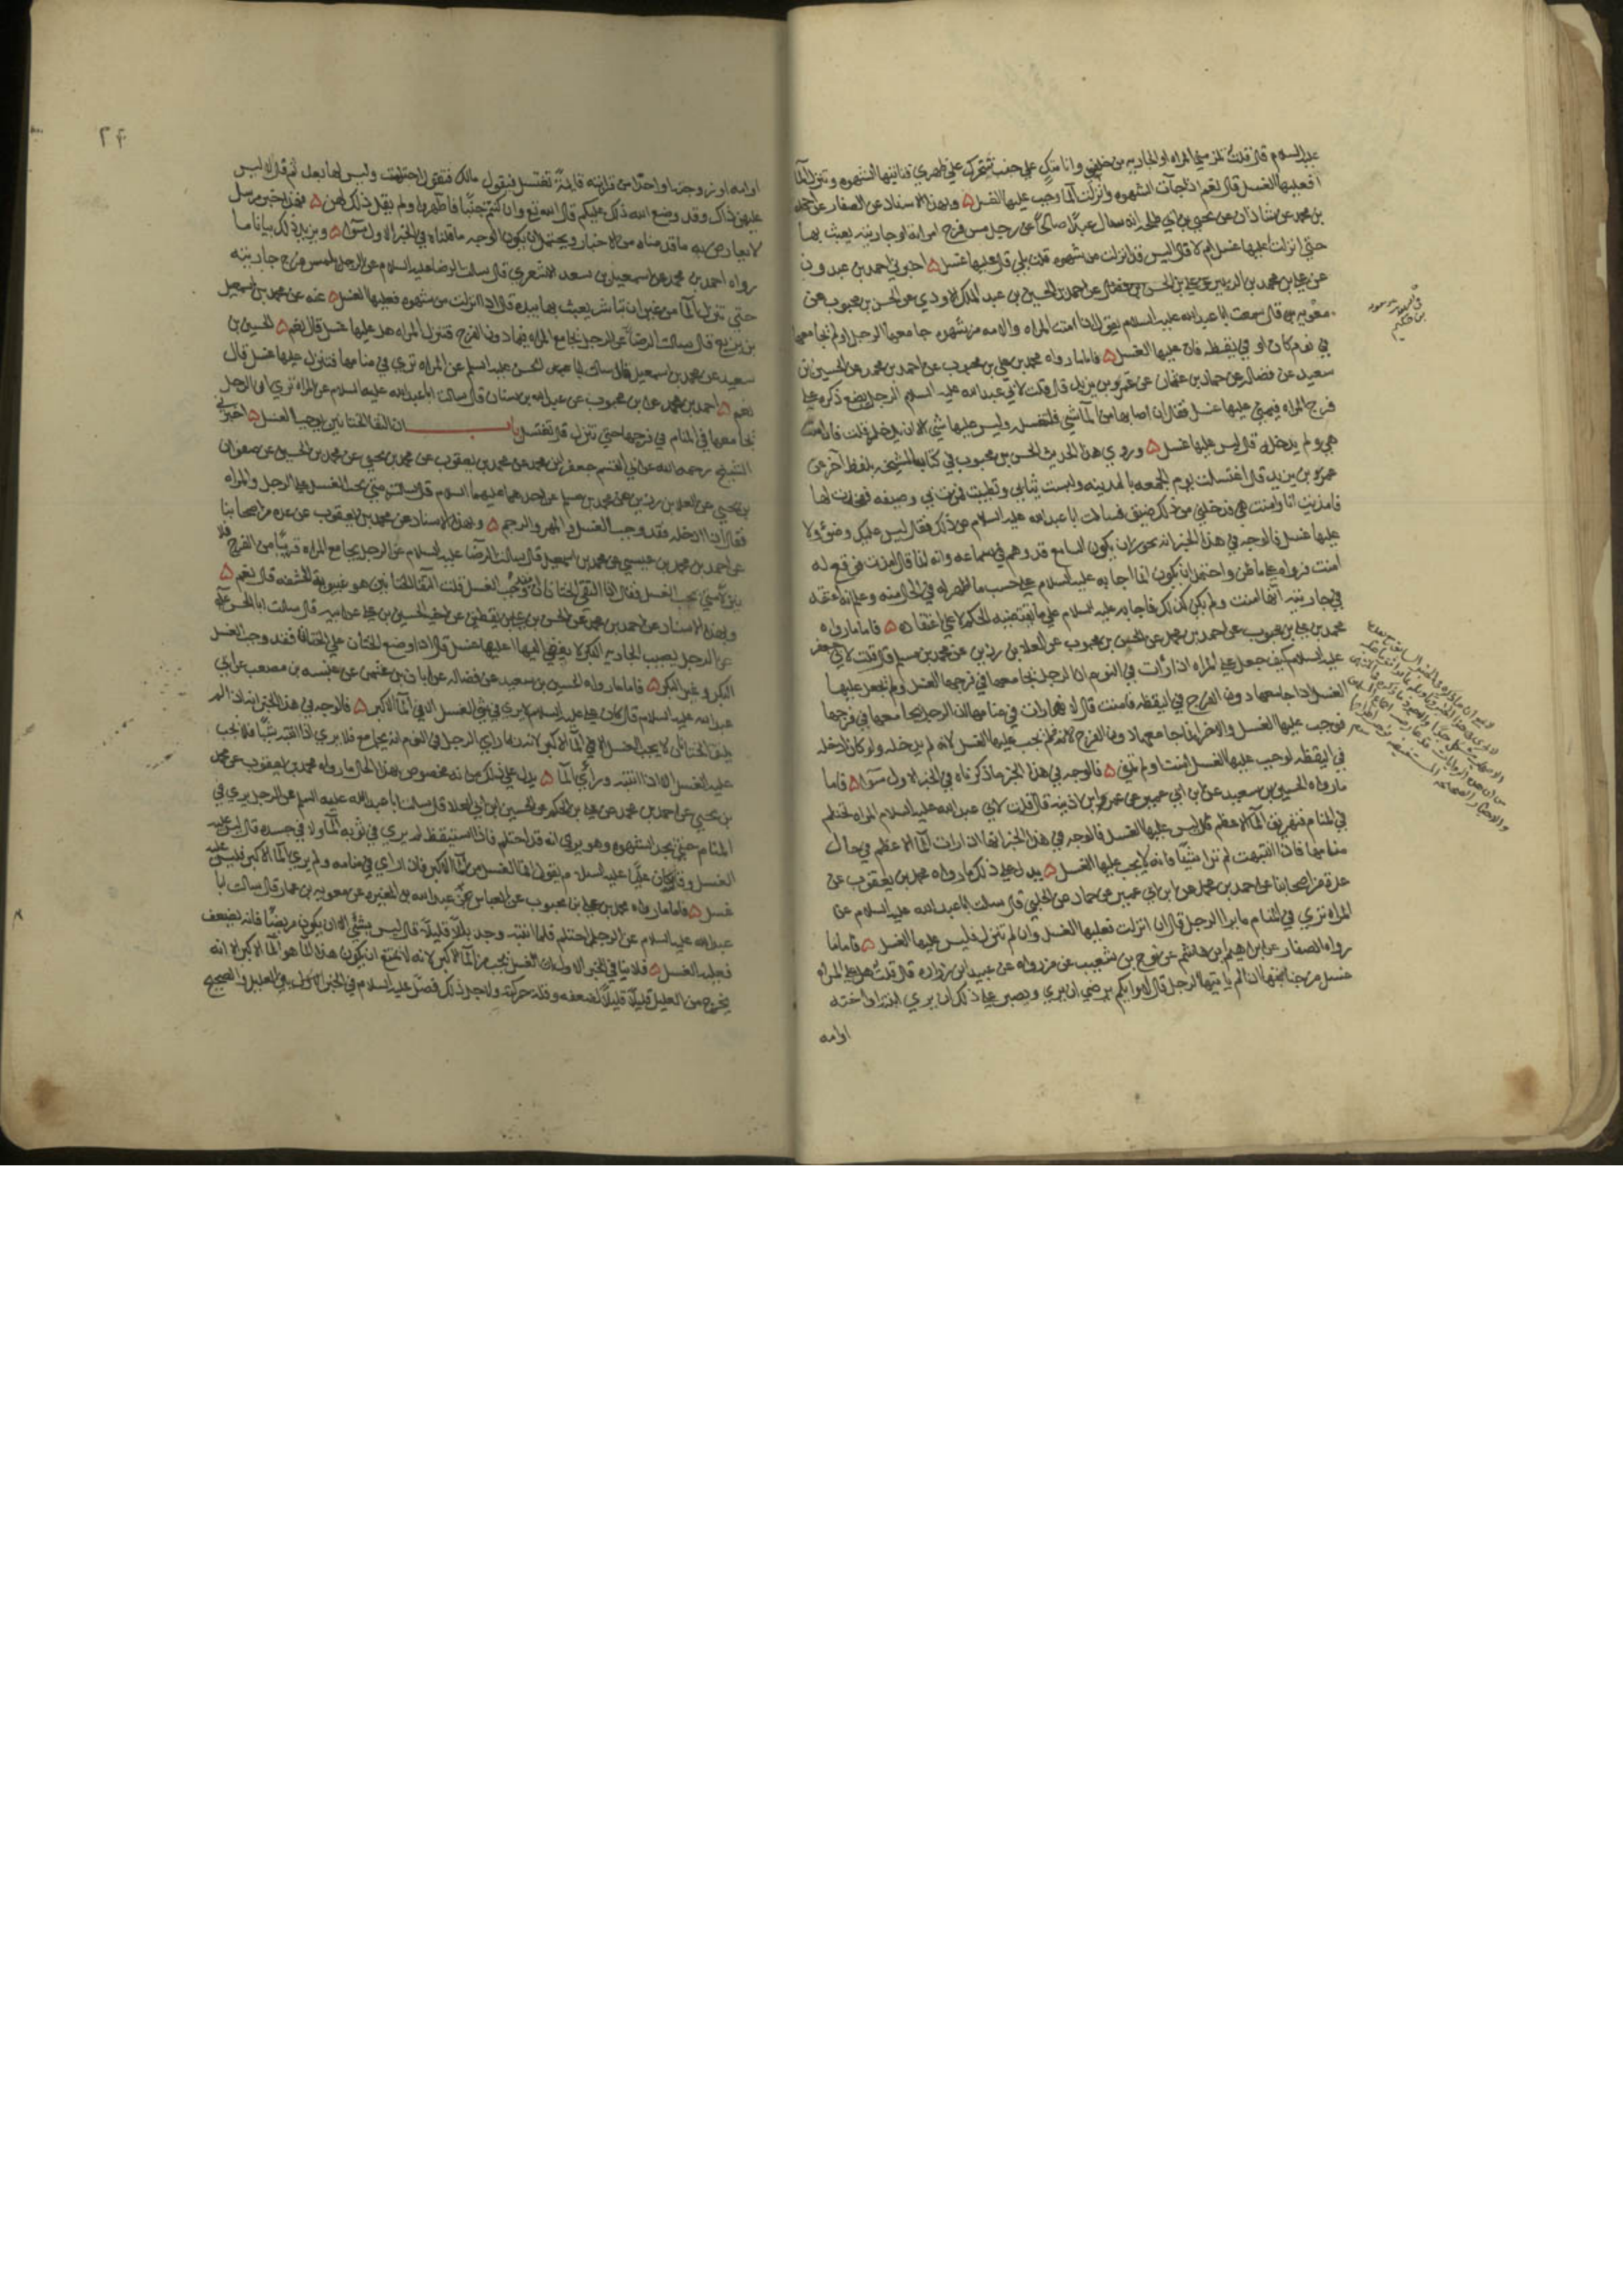 عليه السلام قال قلت تلزمني المراه او الجاريه من خلفي وانا متكي علي جنب فتتحرك علي ظهري فتاتيها الشهوه وتنزل المآ
افعليها الغسل قال نعم اذا جآت الشهوه وانزلت المآ وجب عليها الغسل ۵ وبهذا الاسناد عن الصفار عن احمد
بن محمد عن شاذان عن يحيي بن ابي طلحه انه سال عبدًا صالحًا عن رجل مس فرج امراته او جاريته يعبث بها
حتي انزلت عليها غسل ام لا قال اليس قد انزلت من شهوه قلت بلي قال عليها غسل ۵ اخبرني احمد بن عبدون
عن علي بن محمد بن الزبير عن علي بن الحسن بن فضال عن احمد بن الحسين بن عبد الملك الاودي عن الحسن بن محبوب عن
معويه قال سمعت ابا عبد الله عليه السلام يقول اذا امنت المراه والامه من شهوه جامعها الرجل او لم يجامعها
في نوم كان او في يقظه فان عليها الغسل ۵ فاما ما رواه محمد بن علي بن محبوب عن احمد بن محمد عن الحسين بن
سعيد عن فضاله عن حماد بن عثمان عن عمر بن يزيد قال قلت لابي عبد الله عليه السلام الرجل يضع ذكره علي
فرج المراه فيمني عليها غسل فقال ان اصابها من المآ شي فلتغسله وليس عليها شي الا ان يدخله قلت فان امنت
هي ولم يدخله قال ليس عليها غسل ۵ وروي هذا الحديث الحسن بن محبوب في كتاب المشيخه بلفظ آخر عن
عمر بن يزيد قال اغتسلت يوم الجمعه بالمدينه ولبست ثيابي وتطيبت فمرت بي وصيفه ففخذت لها
فامذيت انا وامنت هي فدخلني من ذلك ضيق فسالت ابا عبد الله عليه السلام عن ذلك فقال ليس عليك وضوء ولا
عليها غسل فالوجه في هذا الخبر انه يجوز ان يكون السامع قد وهم في سماعه وانه انما قال امذت فوقع له
امنت فرواه علي ما ظن واحتمل ان يكون انما اجابه عليه السلام علي حسب ما ظهر له في الحال منه وعلم انه اعتقد
في جاريته انها امنت ولم يكن كذلك فاجابه عليه السلام علي ما يقتضيه الحكم لا علي اعتقاده ۵ فاما ما رواه
محمد بن علي بن محبوب عن احمد بن محمد عن الحسن بن محبوب عن العلا بن رزين عن محمد بن مسلم قال قلت لابي جعفر
عليه السلام كيف جعل علي المراه اذا رات في النوم ان الرجل يجامعها في فرجها الغسل ولم يجعل عليها
الغسل اذا جامعها دون الفرج في اليقظه فامنت قال لانها رات في منامها ان الرجل يجامعها في فرجها
فوجب عليها الغسل والاخر انما جامعها دون الفرج فلم يجب عليها الغسل لانه لم يدخله ولو كان ادخله
في اليقظه لوجب عليها الغسل امنت او لم تمن ۵ فالوجه في هذا الخبر ما ذكرناه في الخبر الاول سوآ ۵ فاما
ما رواه الحسين بن سعيد عن ابن ابي عمير عن عمر بن اذينه قال قلت لابي عبد الله عليه السلام المراه تحتلم
في المنام فتهريق المآ الاعظم قال ليس عليها الغسل فالوجه في هذا الخبر انها اذا رات المآ الاعظم في حال
منامها فاذا انتبهت لم تر شيئًا فانه لا يجب عليها الغسل ۵ يدل علي ذلك ما رواه محمد بن يعقوب عن
عدة من اصحابنا عن احمد بن محمد عن ابن ابي عمير عن حماد عن الحلبي قال سالت ابا عبد الله عليه السلام عن
المراه تري في المنام ما يرا الرجل قال ان انزلت فعليها الغسل وان لم تنزل فليس عليها الغسل ۵ فاما ما
رواه الصفار عن ابراهيم بن هاشم عن نوح بن شعيب عمن رواه عن عبيد بن زراره قال قلت هل علي المراه
غسل من جنابتها اذا لم ياتيها الرجل قال لا وايكم يرضي ان يري ويصبر علي ذلك ان يري ابنته او اخته
اوامه
في
بن حكيم
۲۴
او امه او زوجته او احدًا من قرابته قايمة تغتسل فيقول مالك فتقول احتلمت وليس لها بعل ثم قال لا ليس
عليهن ذاك وقد وضع الله ذلك عليكم قال الله تع وان كنتم جنبًا فاطهروا ولم يقل ذلك لهن ۵ فهذا خبر مرسل
لا يعارض به ما قدمناه من الاخبار ويحتمل ان يكون الوجه ما قلناه في الخبر الاول سوآ ۵ ويزيد ذلك بيانا ما
رواه احمد بن محمد عن اسمعيل بن سعد الاشعري قال سالت الرضا عليه السلام عن الرجل يلمس فرج جاريته
حتي تنزل المآ من غير ان يباشر يعبث بها بيده قال اذا انزلت من شهوه فعليها الغسل ۵ عنه عن محمد بن اسمعيل
بن بزيع قال سالت الرضا عن الرجل يجامع المراه فيما دون الفرج فتنزل المراه هل عليها غسل قال نعم ۵ الحسين بن
سعيد عن محمد بن اسمعيل قال سالت ابا الحسن عليه السلم عن المراه تري في منامها فتنزل عليها غسل قال
نعم ۵ احمد بن محمد عن ابن محبوب عن عبد الله بن سنان قال سالت ابا عبد الله عليه السلام عن المراه تري ان الرجل
يجامعها في المنام في فرجها حتي تنزل قال تغتسل باب ان التقا الختانين يوجب الغسل ۵ اخبرني
الشيخ رحمه الله عن ابي القسم جعفر بن محمد عن محمد بن يعقوب عن محمد بن يحيي عن محمد بن الحسين عن صفوان
بن يحيي عن العلا بن رزين عن محمد بن مسلم عن احدهما عليهما السلام قال سالته متي يجب الغسل علي الرجل والمراه
فقال اذا ادخله فقد وجب الغسل والمهر والرجم ۵ وبهذا الاسناد عن محمد بن يعقوب عن عدة من اصحابنا
عن احمد بن محمد بن عيسي عن محمد بن اسمعيل قال سالت الرضا عليه السلام عن الرجل يجامع المراه قريبًا من الفرج فلا
ينزلان متي يجب الغسل فقال اذا التقي الختانان فقد وجب الغسل قلت التقا الختانين هو غيبوبة الحشفه قال نعم ۵
وبهذا الاسناد عن احمد بن محمد عن الحسن بن علي بن يقطين عن اخيه الحسين بن علي عن ابيه قال سالت ابا الحسن عليه
عن الرجل يصيب الجاريه البكر لا يفضي اليها اعليها غسل قال اذا وضع الختان علي الختان فقد وجب الغسل
البكر وغير البكر ۵ فاما ما رواه الحسين بن سعيد عن فضاله عن ابان بن عثمن عن عنبسه بن مصعب عن ابي
عبد الله عليه السلام قال كان علي عليه السلام لا يري في شي الغسل الا في المآ الاكبر ۵ فالوجه في هذا الخبر انه اذا لم
يلتق الختانان لا يجب الغسل الا في المآ الاكبر لانه ربما راي الرجل في النوم انه يجامع فلا يري اذا انتبه شيًا فلا يجب
عليه الغسل الا اذا انتبه وراي المآ ۵ يدل علي ذلك من انه مخصوص بهذا الحال ما رواه محمد بن يعقوب عن محمد
بن يحيي عن احمد بن محمد عن علي بن الحكم عن الحسين بن ابي العلا قال سالت ابا عبد الله عليه السلم عن الرجل يري في
المنام حتي يجد الشهوه وهو يري انه قد احتلم فاذا استيقظ لم ير في ثوبه المآ ولا في جسده قال ليس عليه
الغسل وقال كان علي عليه السلام يقول انما الغسل من المآ الاكبر فاذا راي في منامه ولم ير المآ الاكبر فليس عليه
غسل ۵ فاما ما رواه محمد بن علي بن محبوب عن العباس عن عبد الله بن المغيره عن معويه بن عمار قال سالت ابا
عبد الله عليه السلام عن الرجل احتلم فلما انتبه وجد بللًا قليلًا قال ليس بشي الا ان يكون مريضًا فانه يضعف
فعليه الغسل ۵ فلا ينافي الخبر الاول ان الغسل يجب من المآ الاكبر لانه لا يمتنع ان يكون هذا المآ هو المآ الاكبر الا انه
يخرج من العليل قليلًا قليلًا لضعفه وقلة حركته ولاجل ذلك فصل عليه السلام في الخبر بين العليل والصحيح